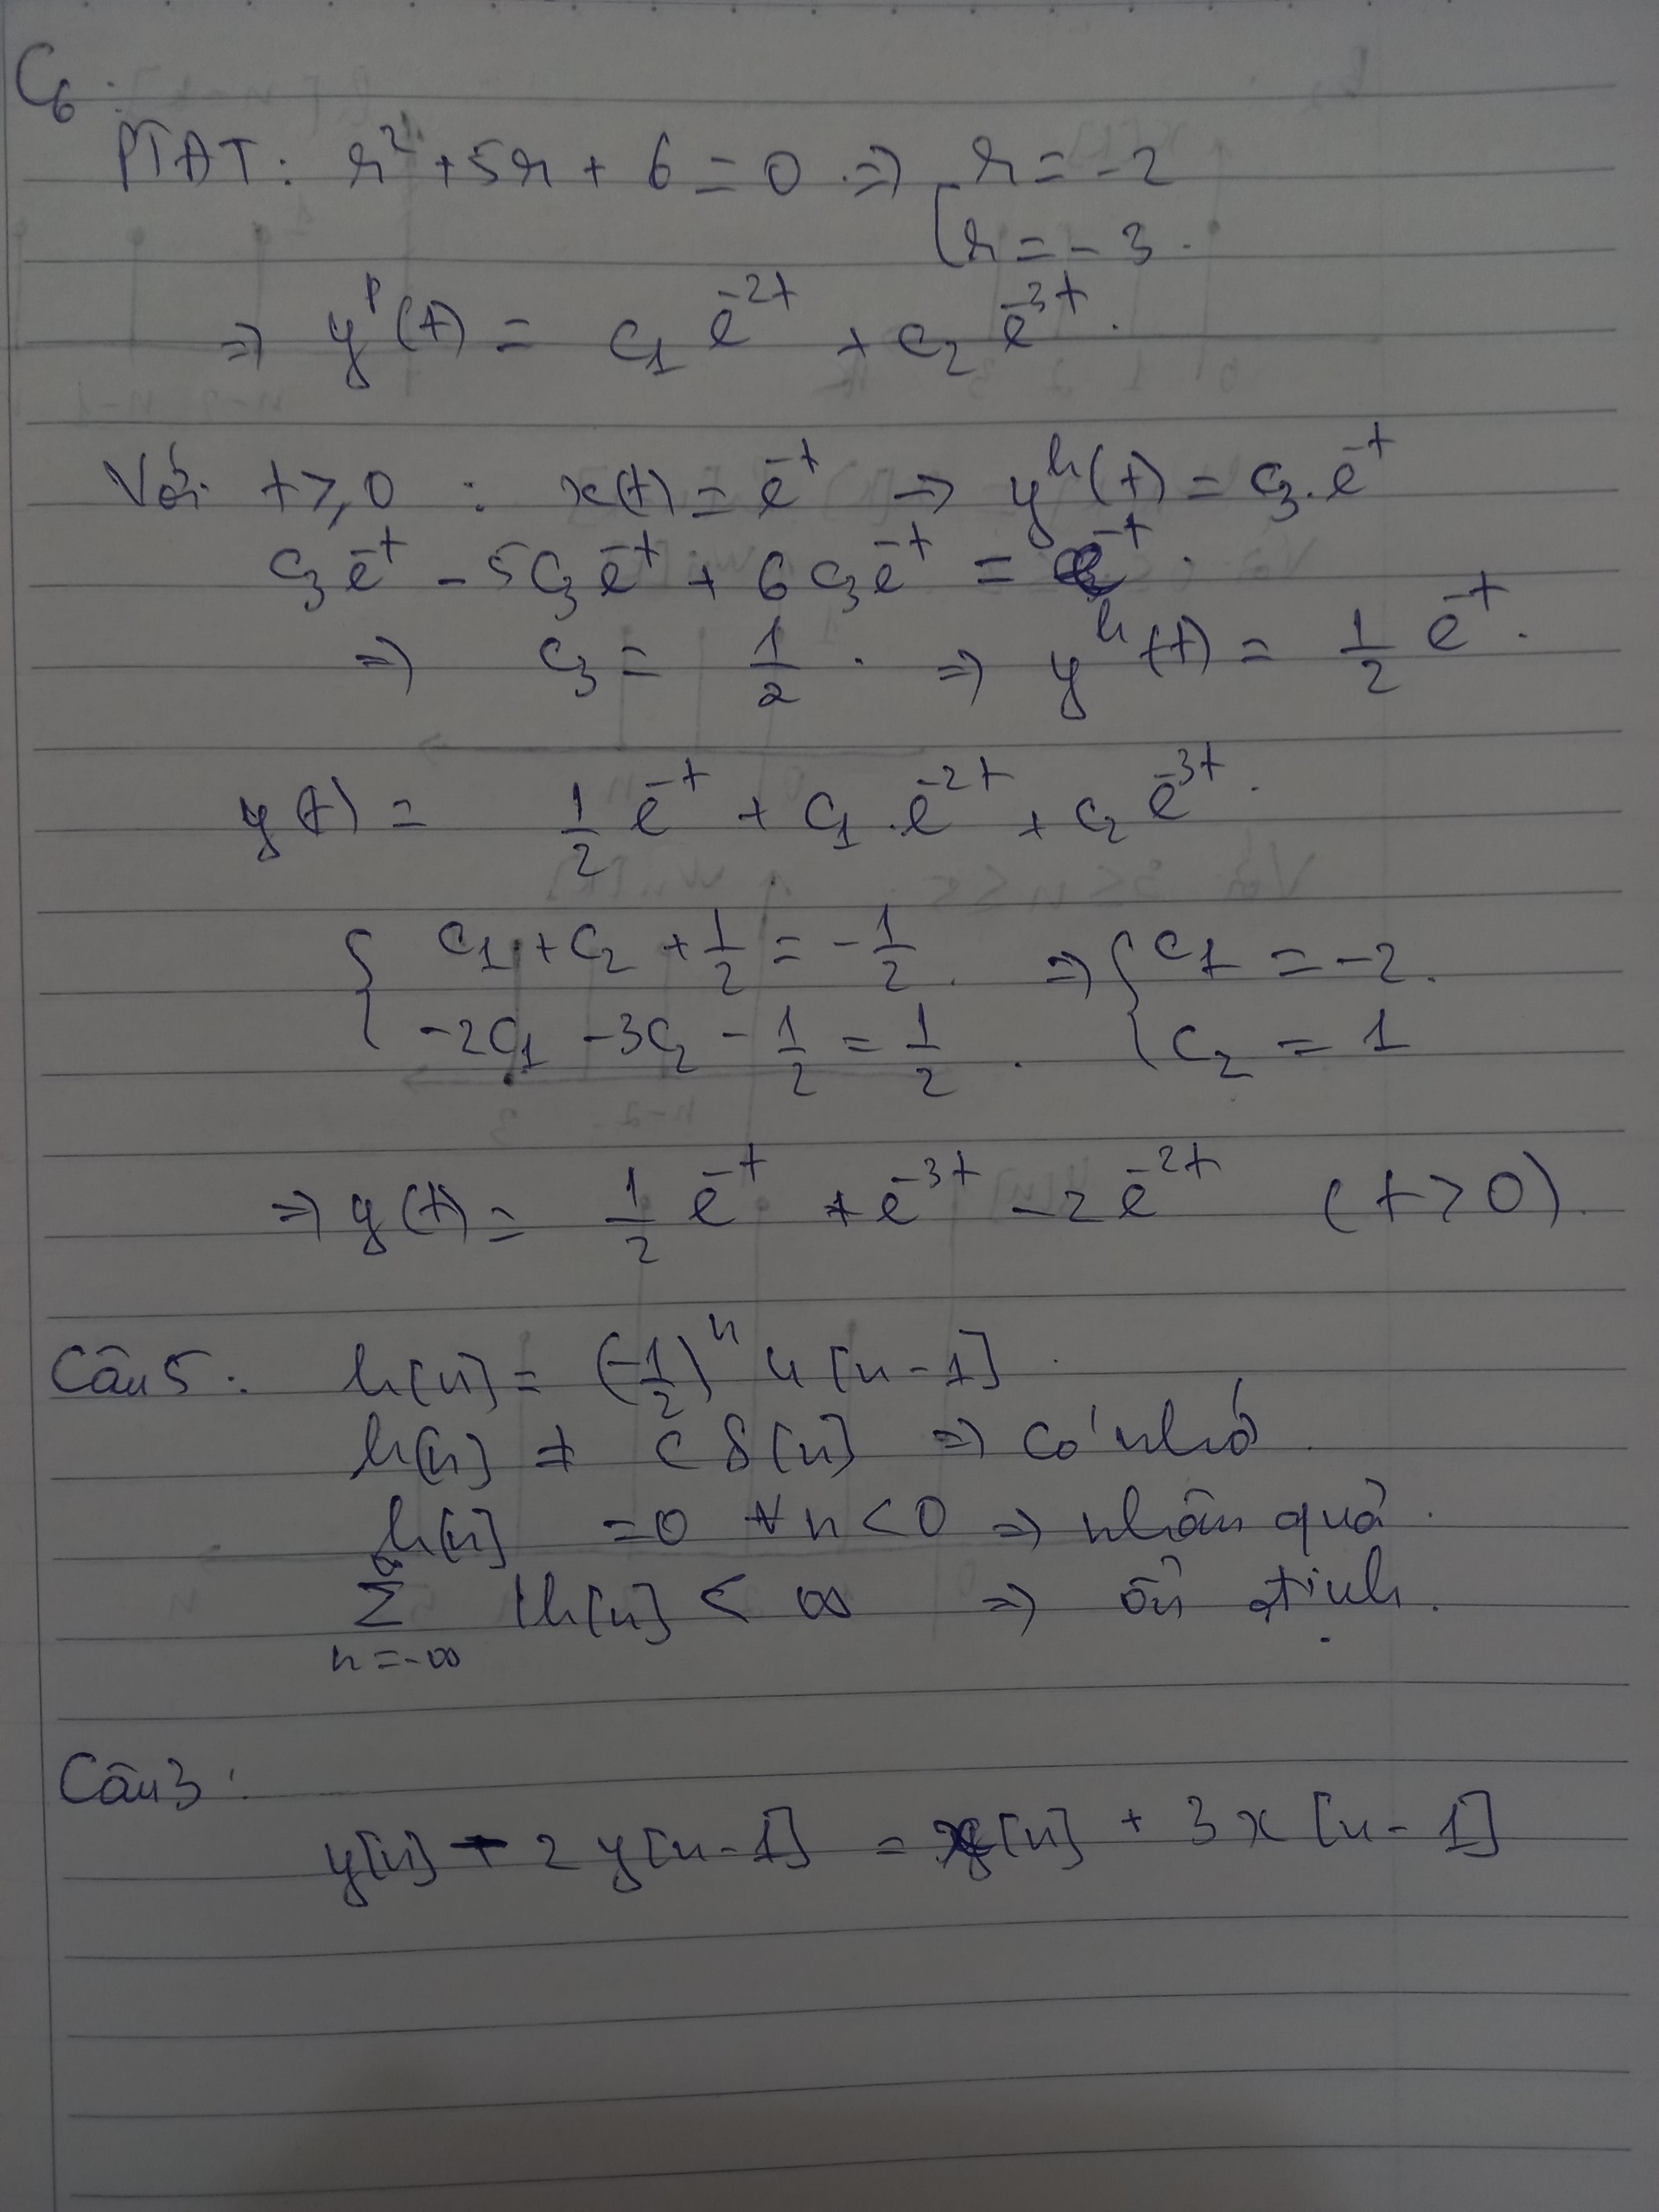 C₆:
PTĐT: r² + 5r + 6 = 0 ⇒ [ r = -2
r = -3.
⇒ y^p(t) = c₁ e^{-2t} + c₂ e^{-3t}.
Với t ≥ 0 : x(t) = e^{-t} ⇒ y^h(t) = c₃.e^{-t}
c₃e^{-t} - 5c₃e^{-t} + 6c₃e^{-t} = e^{-t}.
⇒ c₃ = 1/2. ⇒ y^h(t) = 1/2 e^{-t}.
y(t) = 1/2 e^{-t} + c₁.e^{-2t} + c₂ e^{-3t}.
{ c₁ + c₂ + 1/2 = -1/2. ⇒ { c₁ = -2.
-2c₁ - 3c₂ - 1/2 = 1/2. c₂ = 1
⇒ y(t) = 1/2 e^{-t} + e^{-3t} - 2e^{-2t} (t > 0).
Câu 5: h[n] = (-1/2)^n u[n-1].
h[n] ≠ c δ[n] ⇒ có nhớ.
h[n] = 0 ∀n < 0 ⇒ nhân quả.
∑_{n=-∞}^{∞} |h[n] < ∞ ⇒ ổn định.
Câu 3:
y[n] - 2y[n-1] = x[n] + 3x[n-1]